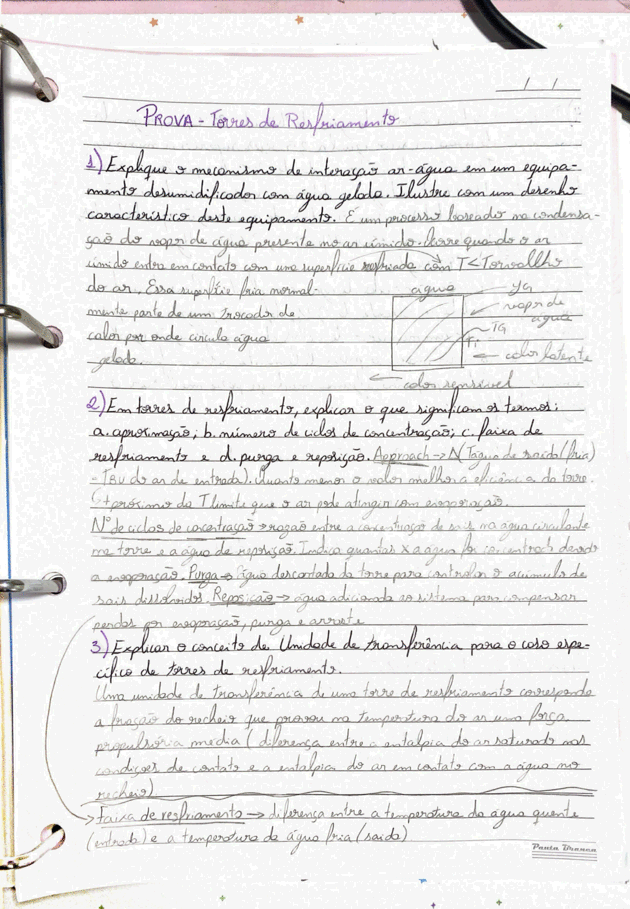 / /
PROVA - Torres de Resfriamento
1) Explique o mecanismo de interação ar-água em um equipa-
mento desumidificador com água gelada. Ilustre com um desenho
característico deste equipamento. É um processo baseado na condensa-
ção do vapor de água presente no ar úmido. Ocorre quando o ar
úmido entra em contato com uma superfície resfriada com T < Torvalho
do ar. Essa superfície fria normal-
mente parte de um trocador de
calor por onde circula água
gelada.
água
yG
vapor de
água
TG
Ti
calor latente
calor sensível
2) Em torres de resfriamento, explicar o que significam os termos:
a. aproximação; b. número de ciclos de concentração; c. faixa de
resfriamento e d. purga e reposição. Approach → Δ(Tágua de saída (fria)
- TBU do ar de entrada). Quanto menor o valor melhor a eficiência da torre.
+ próximo da T limite que o ar pode atingir com evaporação.
Nº de ciclos de concentração → razão entre a concentração de sais na água circulante
na torre e a água de reposição. Indica quantas X a água foi concentrada devido
a evaporação. Purga → Água descartada da torre para controlar o acúmulo de
sais dissolvidos. Reposição → água adicionada ao sistema para compensar
perdas por evaporação, purga e arraste
3) Explicar o conceito de Unidade de transferência para o caso espe-
cífico de torres de resfriamento.
Uma unidade de transferência de uma torre de resfriamento corresponde
a fração do recheio que provoca na temperatura do ar uma força
propulsória média (diferença entre a entalpia do ar saturado nas
condições de contato e a entalpia do ar em contato com a água no
recheio)
Faixa de resfriamento → diferença entre a temperatura da água quente
(entrada) e a temperatura da água fria (saída)
Pauta Branca